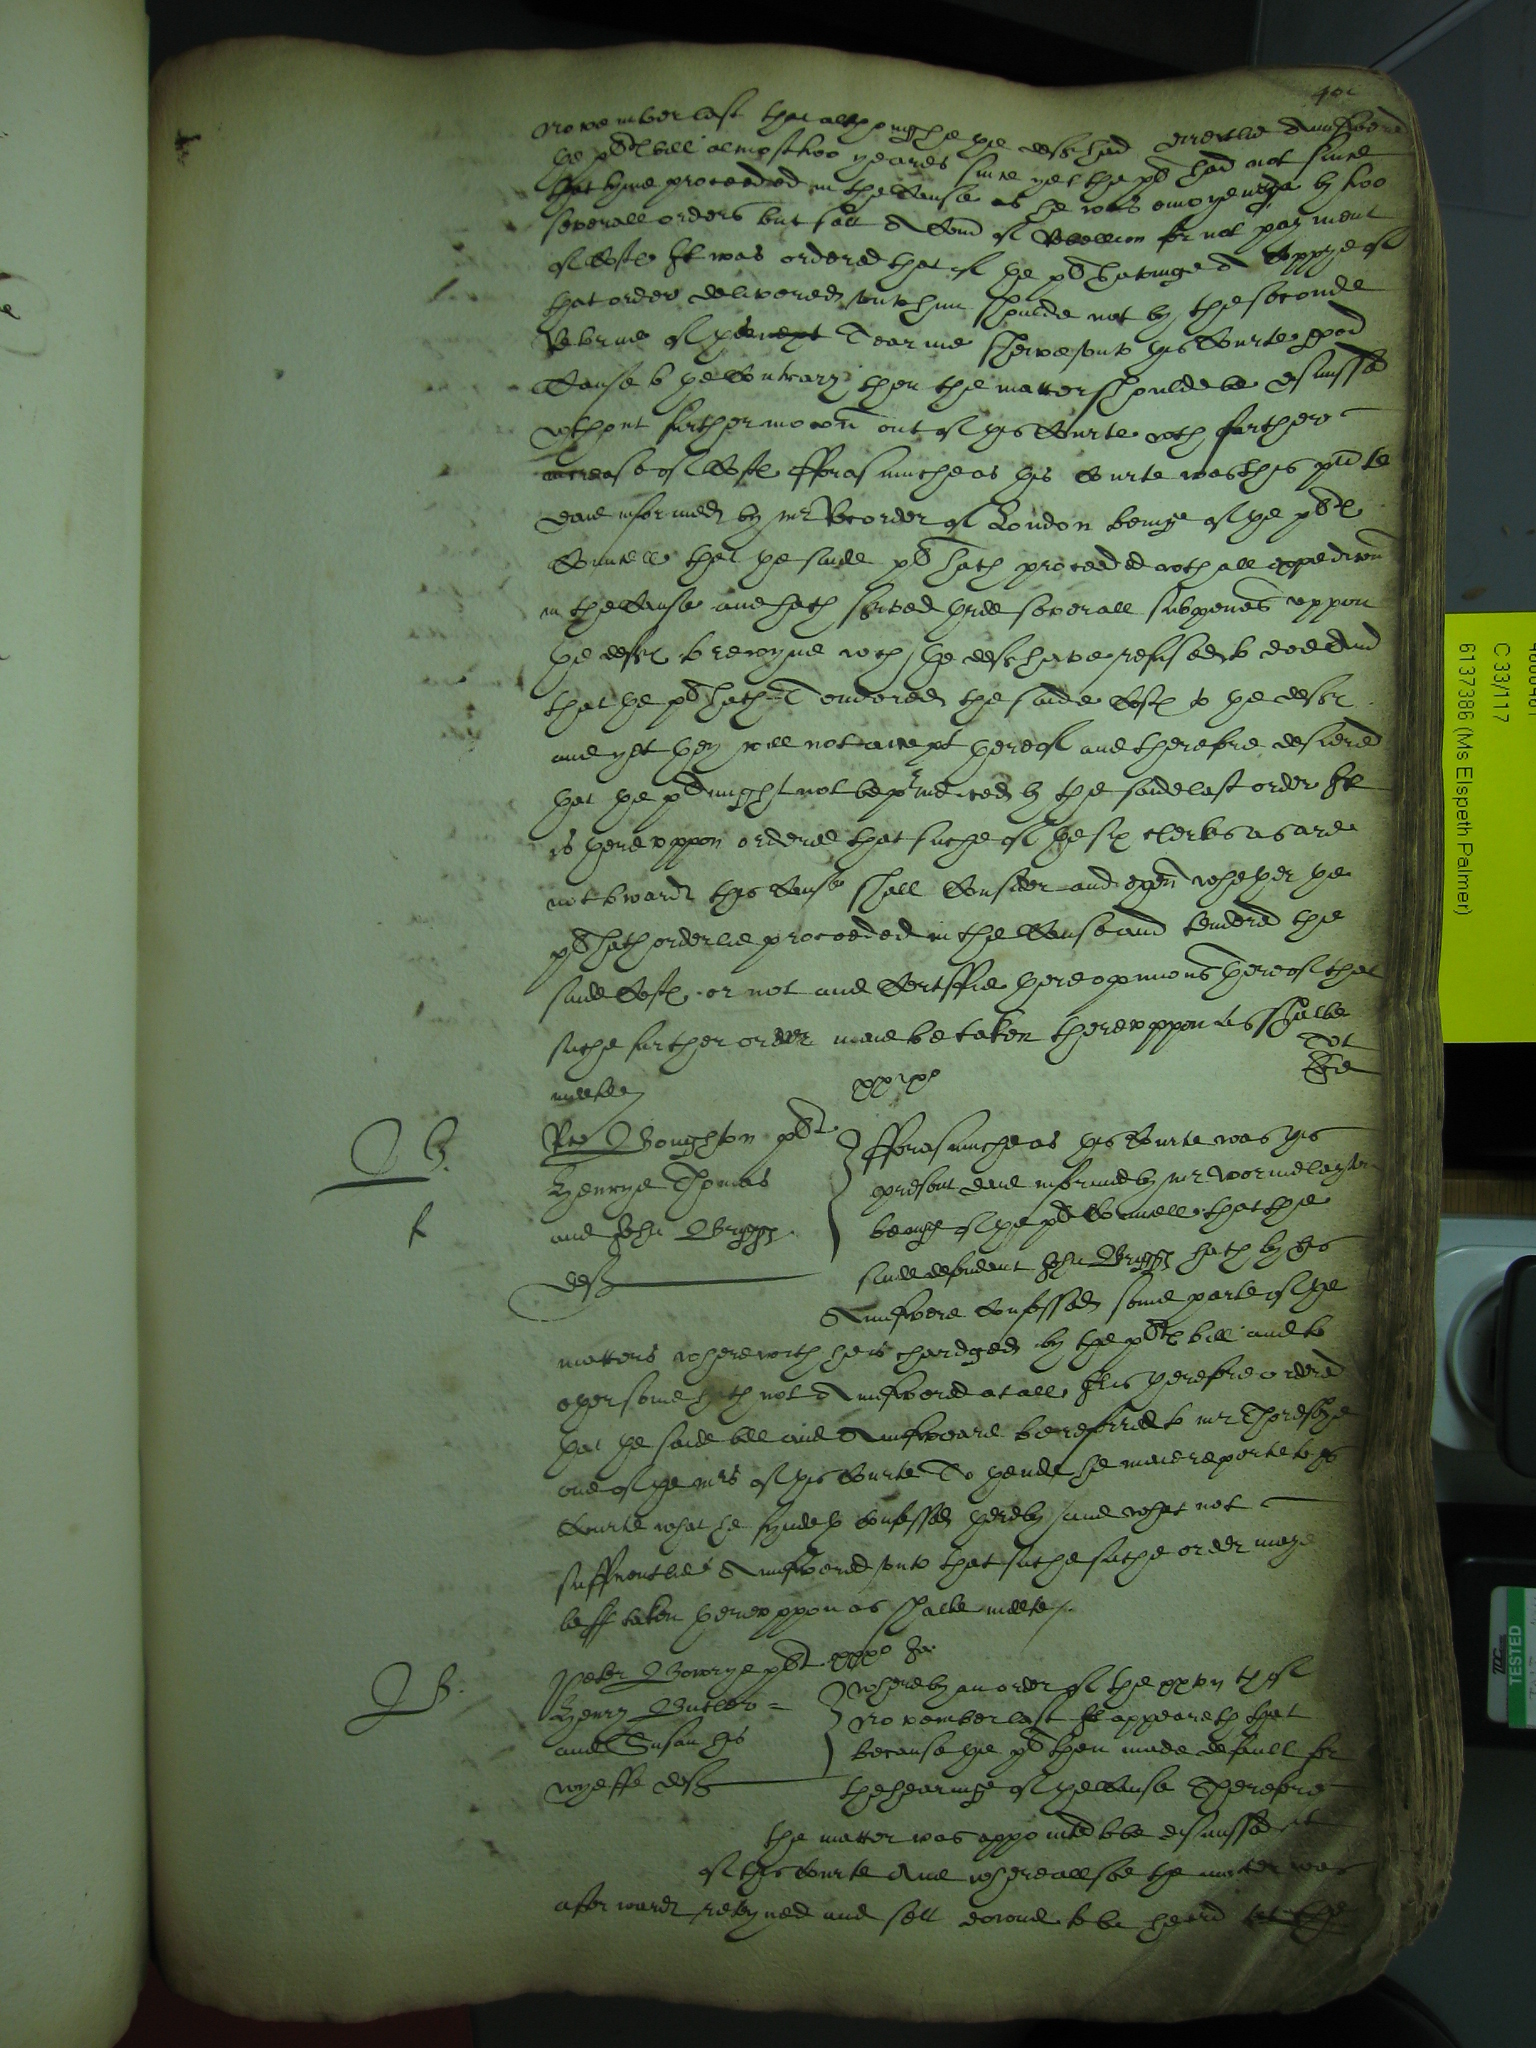 401
November last that althoughe the deftes had directlie Aunswered
the pltes bill almost two yeares since yet the plt had not since
that tyme proceeded in the Cause as he was enioyened by two
severall orders but satt A Com of Rebellion for not payment
of Costes It was ordered that if the plt havinge A Coppye of
that order delivered unto him shoulde not by the seconde
Returne of this next Tearme shewe unto this Courte good
Cause to the Contrary then the matter shoulde be dismissed
without further mocon out of this Courte with further
increase of Costes fforasmuche as this Courte was this pnte
daie informed by mr Recorder of London beinge of the pltes
Councell that the saide plt hath proceeded with all expedicon
in the Cause and hath served three severall subpenas uppon
the deftes to reioyne which the deftes have refused to doe And
that the plt hath Tendered the saide Costes to the deftes
and yet they will not accept thereof and therefore desiered
that the plt might not be preiudiced by the saide last order It
is thereuppon ordered that suche of the six clerkes as are
not towardes this Cause shall Consider and expend whether the
plt hath orderlie proceeded in the Cause and tendered the
saide Costes or not and Certiffie there opinions thereof that
suche further order maie be taken thereuppon as shalbe
meete
B
Ric Boughton plt
Henrye Thomas
and John Brigges
deftes
fforasmuche as this Courte was this
present daie informed by mr Wormelayton
beinge of the plts Councell that the
saide defendent John Brigges hath by his
Aunswere Confessed some parte of the
matters wherewith he is chardged by the pltes bill and to
other some hath not Aunswered at all It is therefore ordered
that the saide bill and Aunsweare be referred to mr
one of the mrs of this Courte To thende he maie reporte to this
Courte what he fyndeth Confessed thereby and what not
sufficientlie Aunswered unto that suche suche order maye
be taken thereuppon as shalbe meete
B
Peter Bowrye plt
Henry Butler
and Susan his
wyeffe deftes
Whereby an order of the xxvjth of
November last It appeareth that
because the plt then made default for
the hearinge of the Cause Therefore
the matter was appointed to be dismissed out
of this Courte And where allsoe the matter was
afterwardes reteyned and sett downe to be heard
C 33/117
6137386 (Ms Elspeth Palmer)
TESTED